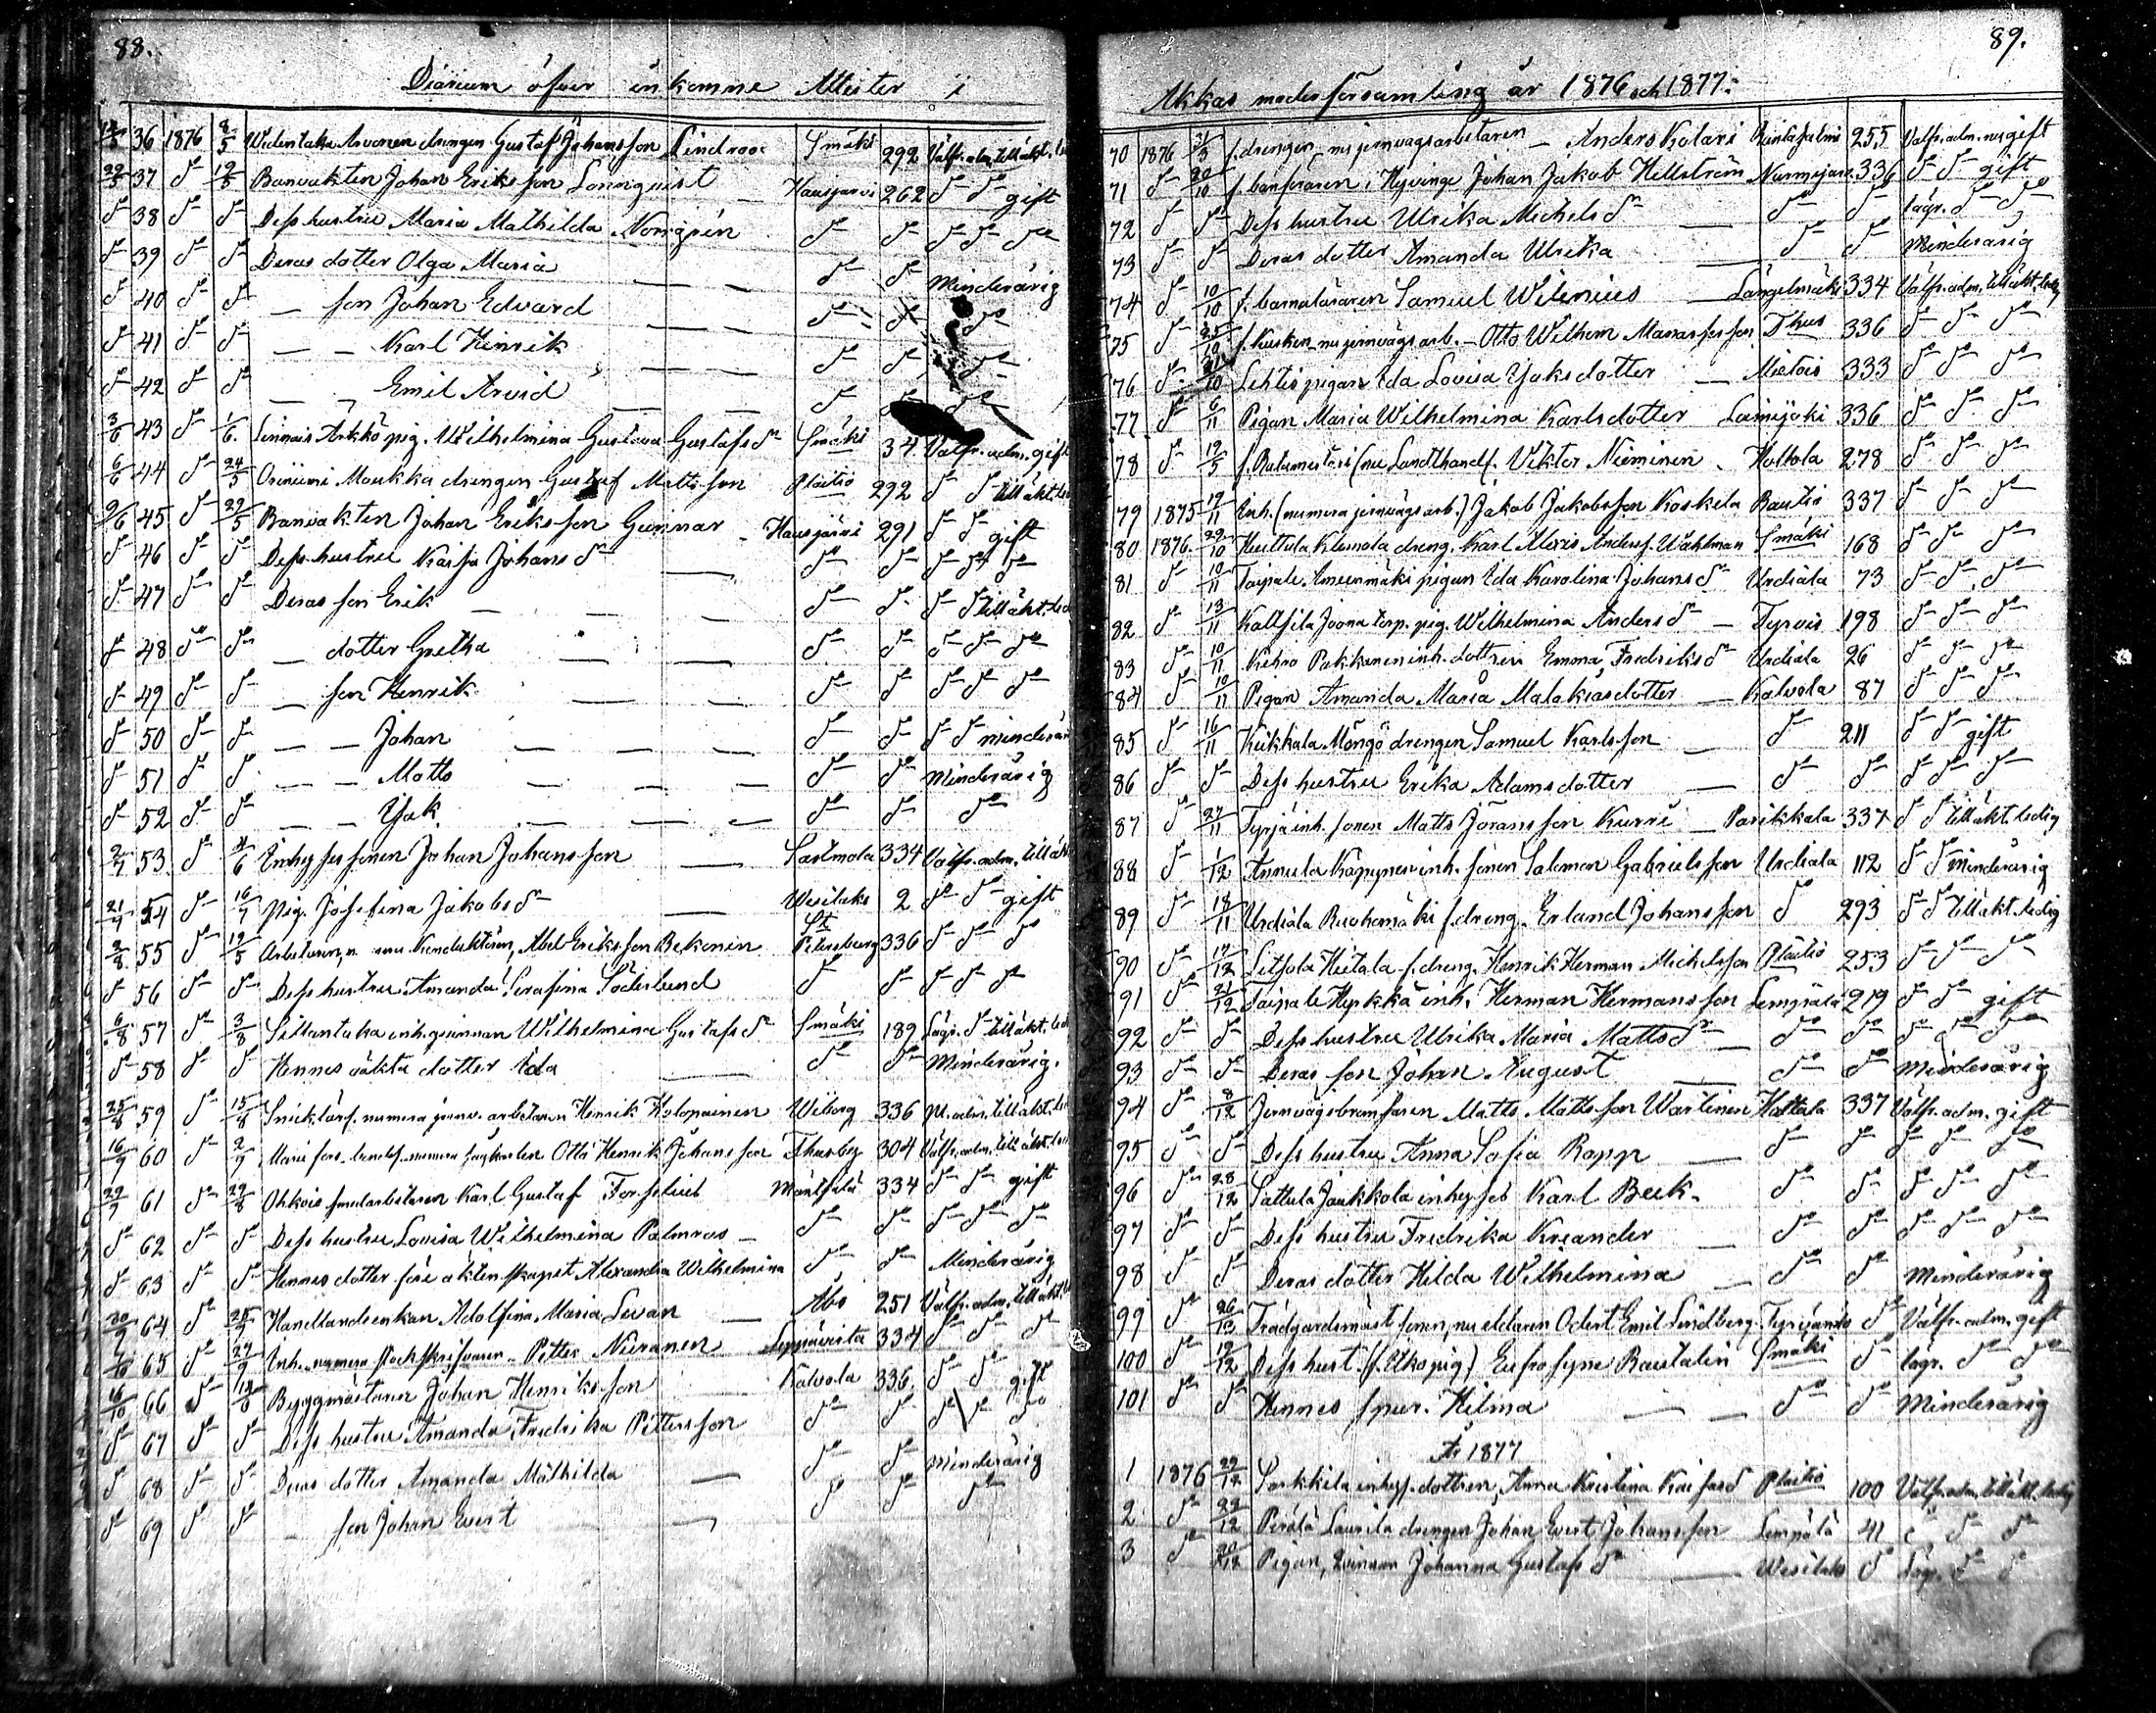 88.
Diarium öfver inkomne Attester i
36 1876 8/5 Widentaka Arvonen drengen Gustaf Johansson Lindroos Smäki 292 Välfr. adm. tillåkt.
22/5 37 do 12/5 Banvakten Johan Eriksson Lönnqvist Hausjärvi 262 do do gift
do 38 do do Dess hustru Maria Mathilda Norrgrén do do do do do
do 39 do do Deras dotter Olga Maria do do Minderårig
do 40 do do son Johan Edvard do do do
do 41 do do Karl Henrik do do do
do 42 do do Emil Arvid do do do
3/6 43 do 1/6 Linnais Arkkö pig. Wilhelmina Gustava Gustafsdr Smäki 34 Välfr. adm. gift
6/6 44 do 24/5 Oriniemi Moukka drengen Gustaf Mattsson Plaitis 292 do do tillåkt.
9/6 45 do 29/5 Banvakten Johan Eriksson Gunnar Hausjärvi 291 do do gift
do 46 do do Dess hustru Kaisa Johansdr do do do do do
do 47 do do Deras son Erik do do do do tillåkt. led
do 48 do do dotter Gretha do do do do do
do 49 do do son Henrik do do do do do
do 50 do do Johan do do do do minderår
do 51 do do Matts do do Minderårig
do 52 do do Isak do do do
2/7 53 do 4/6 Inhyssessonen Johan Johansson Sastmola 334 Välfr. adm. tillåk
21/7 54 do 16/7 Pig. Josefina Jakobsdr Wesilaks 2 do do gift
2/8 55 do 19/5 Arbetaren, nu Konduktören, Abel Eriksson Rekonen St Petersburg 336 do do do
do 56 do do Dess hustru Amanda Serafina Söderlund do do do do do
6/8 57 do 3/8 Sillantaka inh.qvinnan Wilhelmina Gustafsdr Smäki 189 Lägr. do tillåkt. led
do 58 do do Hennes oäkta dotter Ida do do Minderårig.
25/8 59 do 15/8 Snickaref. numera jernv. arbetaren Henrik Kolopainen Wiborg 336 adm. tillåkt.
16/9 60 do 2/9 numera Otto Henrik Johansson Thusby 304 Välfr. adm. tillåkt.
22/9 61 do 29/8 Ohkois Karl Gustaf Forselius Mäntsälä 334 do do gift
do 62 do do Dess hustru Lovisa Wilhelmina Palmroos do do do do do
do 63 do do Hennes dotter före äktenskapet Alexandra Wilhelmina do do Minderårig
30/9 64 do 25/9 Handlandeenkan Adolfina Maria Levan Åbo 251 Välfr. adm. tillåkt.
65 do 27/9 Inh. numera Petter Nieranen Leppävirta 334 do do do
16/10 66 do Byggmästaren Johan Henriksson Kalvola 336 do do gift
do 67 do do Dess hustru Amanda Fredrika Pettersson do do do do do
do 68 do do Deras dotter Amanda Mathilda do do Minderårig
do 69 do do son Johan Evert do do do
89.
Akkas moderförsamling år 1876 och 1877.
70 1876 31/3 f.drengen, nu jernvägsarbetaren Anders Kotari Rantasalmi 255 Välfr. adm. nu gift
71 do 20/10 f. banföraren i Hyvinge Johan Jakob Hellström Nurmijärvi 336 do do gift
72 do do Dess hustru Ulrika Michelsdr do do lägr. do do
73 do do Deras dotter Amanda Ulrika do do Minderårig
74 do 10/10 f. barnaläraren Samuel Wilenius Längelmäki 334 Välfr. adm. tillåkt. ledig
75 do 25/10 f. kusken, nu jernvägsarb. Otto Wilhem Manassesson Thus 336 do do do
76 do /10 Lehtis pigan Ida Lovisa Isaksdotter Mietois 333 do do do
77 do 6/11 Pigan Maria Wilhelmina Karlsdotter Loimijoki 336 do do do
78 do 19/5 f. Ratamestari (nu Landthandl. Viktor Nieminen Hollola 278 do do do
79 1875 19/11 Inh. (numera jernvägsarb.) Jakob Jakobsson Koskela Rautio 337 do do do
80 1876 22/10 Huittula Klemola dreng. Karl Alexis Andersf. Wahlman Smäki 168 do do do
81 do 10/11 Taipale pigan Ida Karolina Johansdr Urdiala 73 do do do
82 do 13/11 Kallsila Joona torp. pig. Wilhelmina Andersdr Tyrvis 198 do do do
83 do 10/11 Kehro Pakkanen inh. dottren Emma Fredriksdr Urdiala 26 do do do
84 do 10/11 Pigan Amanda Maria Malakiasdotter Kalvola 87 do do do
85 do 16/11 Keikkala Mongö drengen Samuel Karlsson do 211 do do gift
86 do do Dess hustru Erika Adamsdotter do do do do do
87 do 27/11 Tyrjä inh. sonen Matts Göransson Kurri Parikkala 337 do do tillåkt. ledig
88 do 1/12 Annula Käpynen inh. sonen Salomon Gabrielsson Urdiala 112 do do Minderårig
89 do 18/11 Urdiala Ruohomäki f.dreng. Erland Johansson do 293 do do tillåkt. ledig
90 do 17/12 Letsola Heitala f.dreng. Henrik Herman Michelsson Plaitis 253 do do do
91 do 21/12 Taipale Hyrkkä inh. Herman Hermansson Lempäälä 219 do do gift
92 do do Dess hustru Ulrika Maria Mattsdr do do do do do
93 do do Deras son Johan August do do Minderårig
94 do 8/12 Jernvägsbromsaren Matts Mattsson Wartinen Hattula 337 Välfr. adm. gift
95 do do Dess hustru Anna Sofia Rapp do do do do do
96 do 28/12 Sattula Jaakkola inhyses Karl Beck do do do do do
97 do do Dess hustru Fredrika Kreander do do do do do
98 do do Deras dotter Hilda Wilhelmina do do Minderårig
99 do 26/ Trädgårdsmäst.sonen, nu eldaren Odert Emil Lindberg Tyrväntö do Välfr. adm. gift
100 do 19/12 Dess hust. (f. Utko pig) Eufrosyne Rautalin Smäki do lägr. do do
101 do do Hennes spur. Hilma do do Minderårig
År 1877
1 1876 29/12 Sarkkila inhys. dottren, Anna Kristina Kaisasd Plaitis 100 Välfr. adm. tillåkt. ledig
2 do 22/12 Perälä Laurila drengen Johan Evert Johansson Lempälä 41 do do
3 do 20/12 Pigan, Qvinnan Johanna Gustafsdr Wesilaks do Lägr. do do